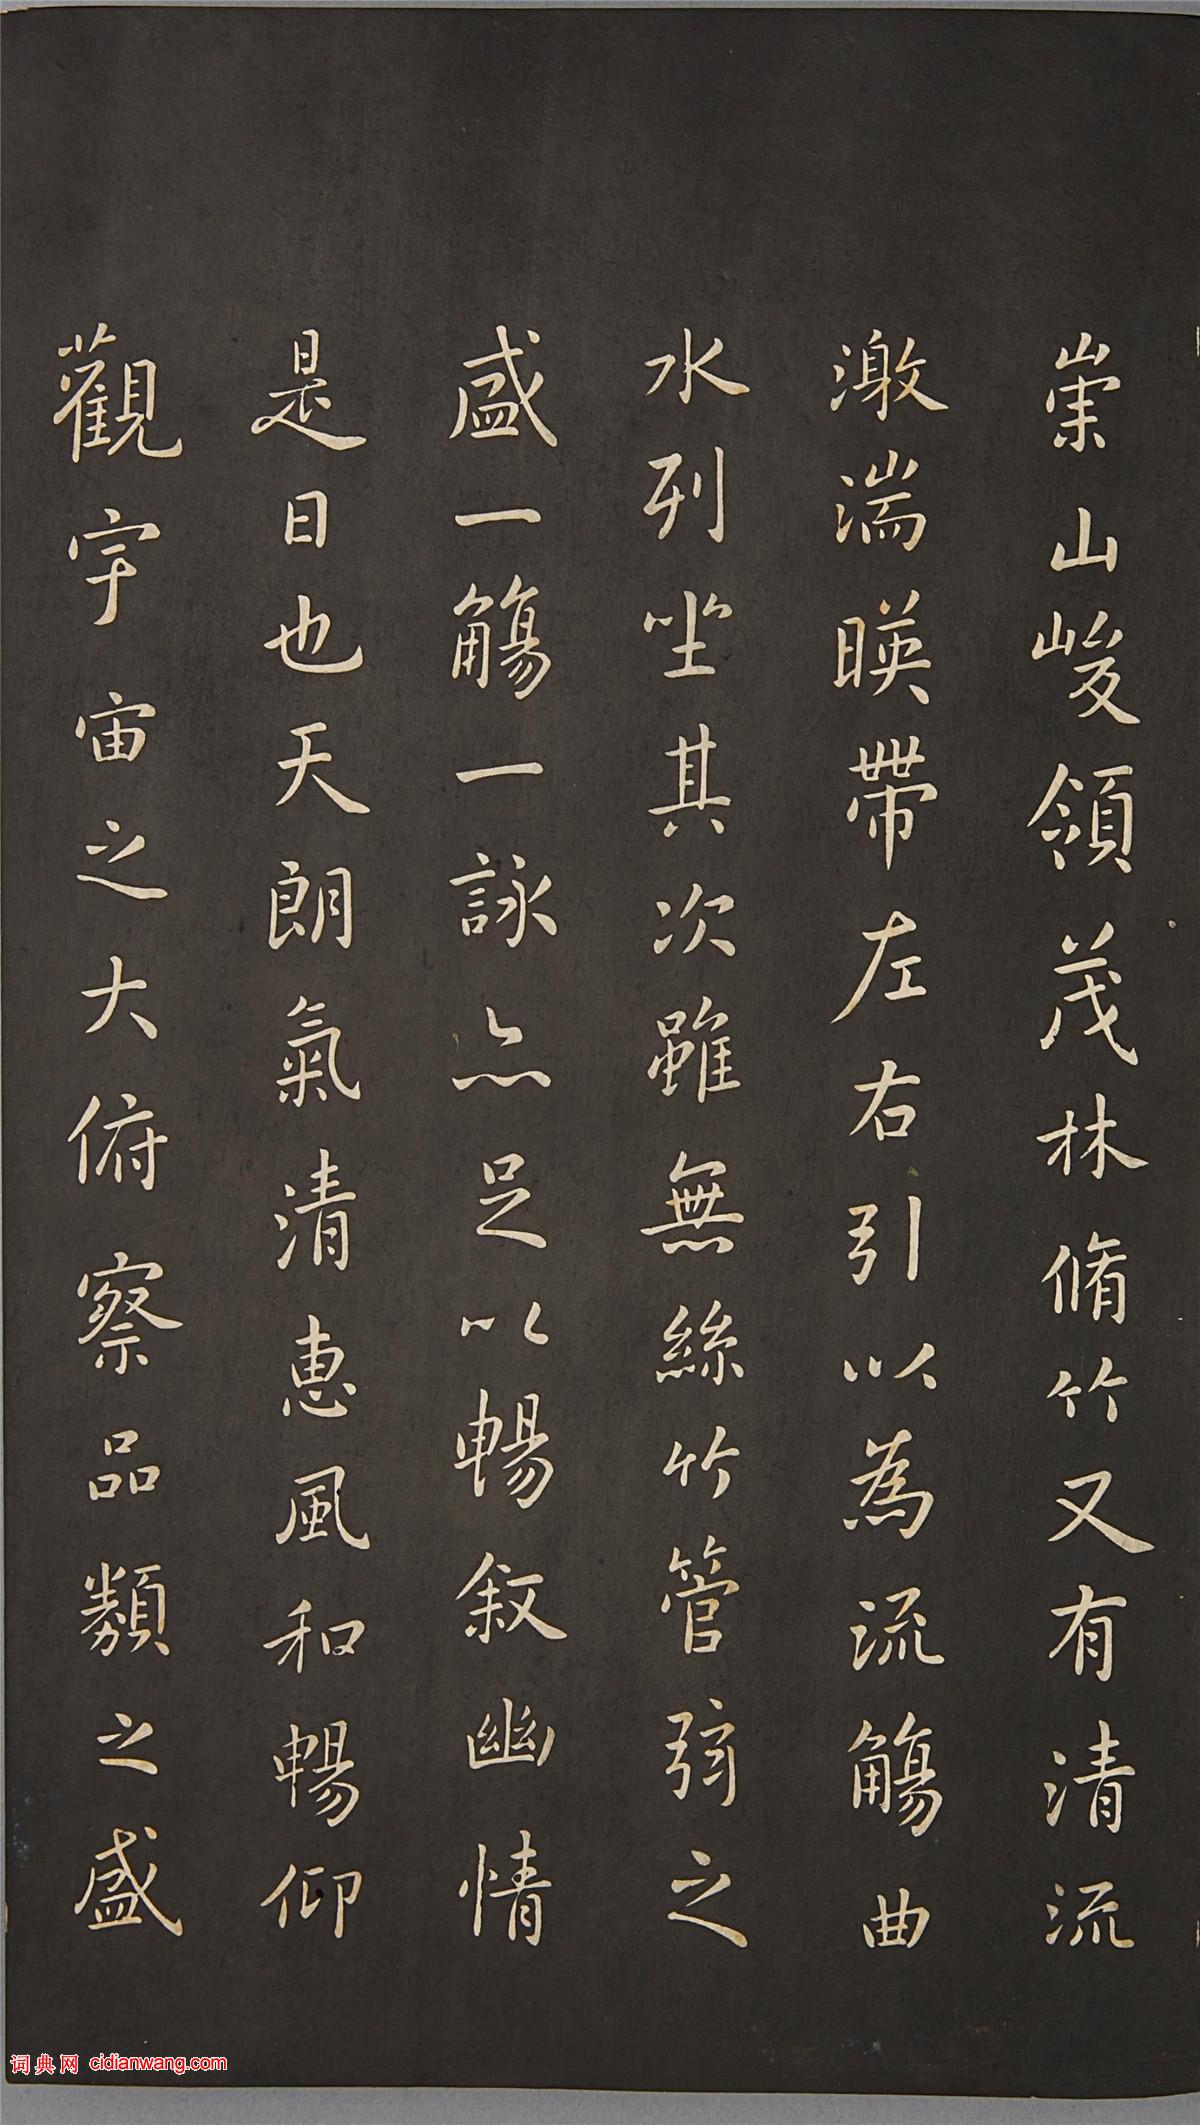 崇山峻領茂林脩竹又有清流
激湍暎帶左右引以為流觴曲
水列坐其次雖無絲竹管弦之
盛一觴一詠亦足以暢敘幽情
是日也天朗氣清惠風和暢仰
觀宇宙之大俯察品類之盛
词典网 cidianwang.com